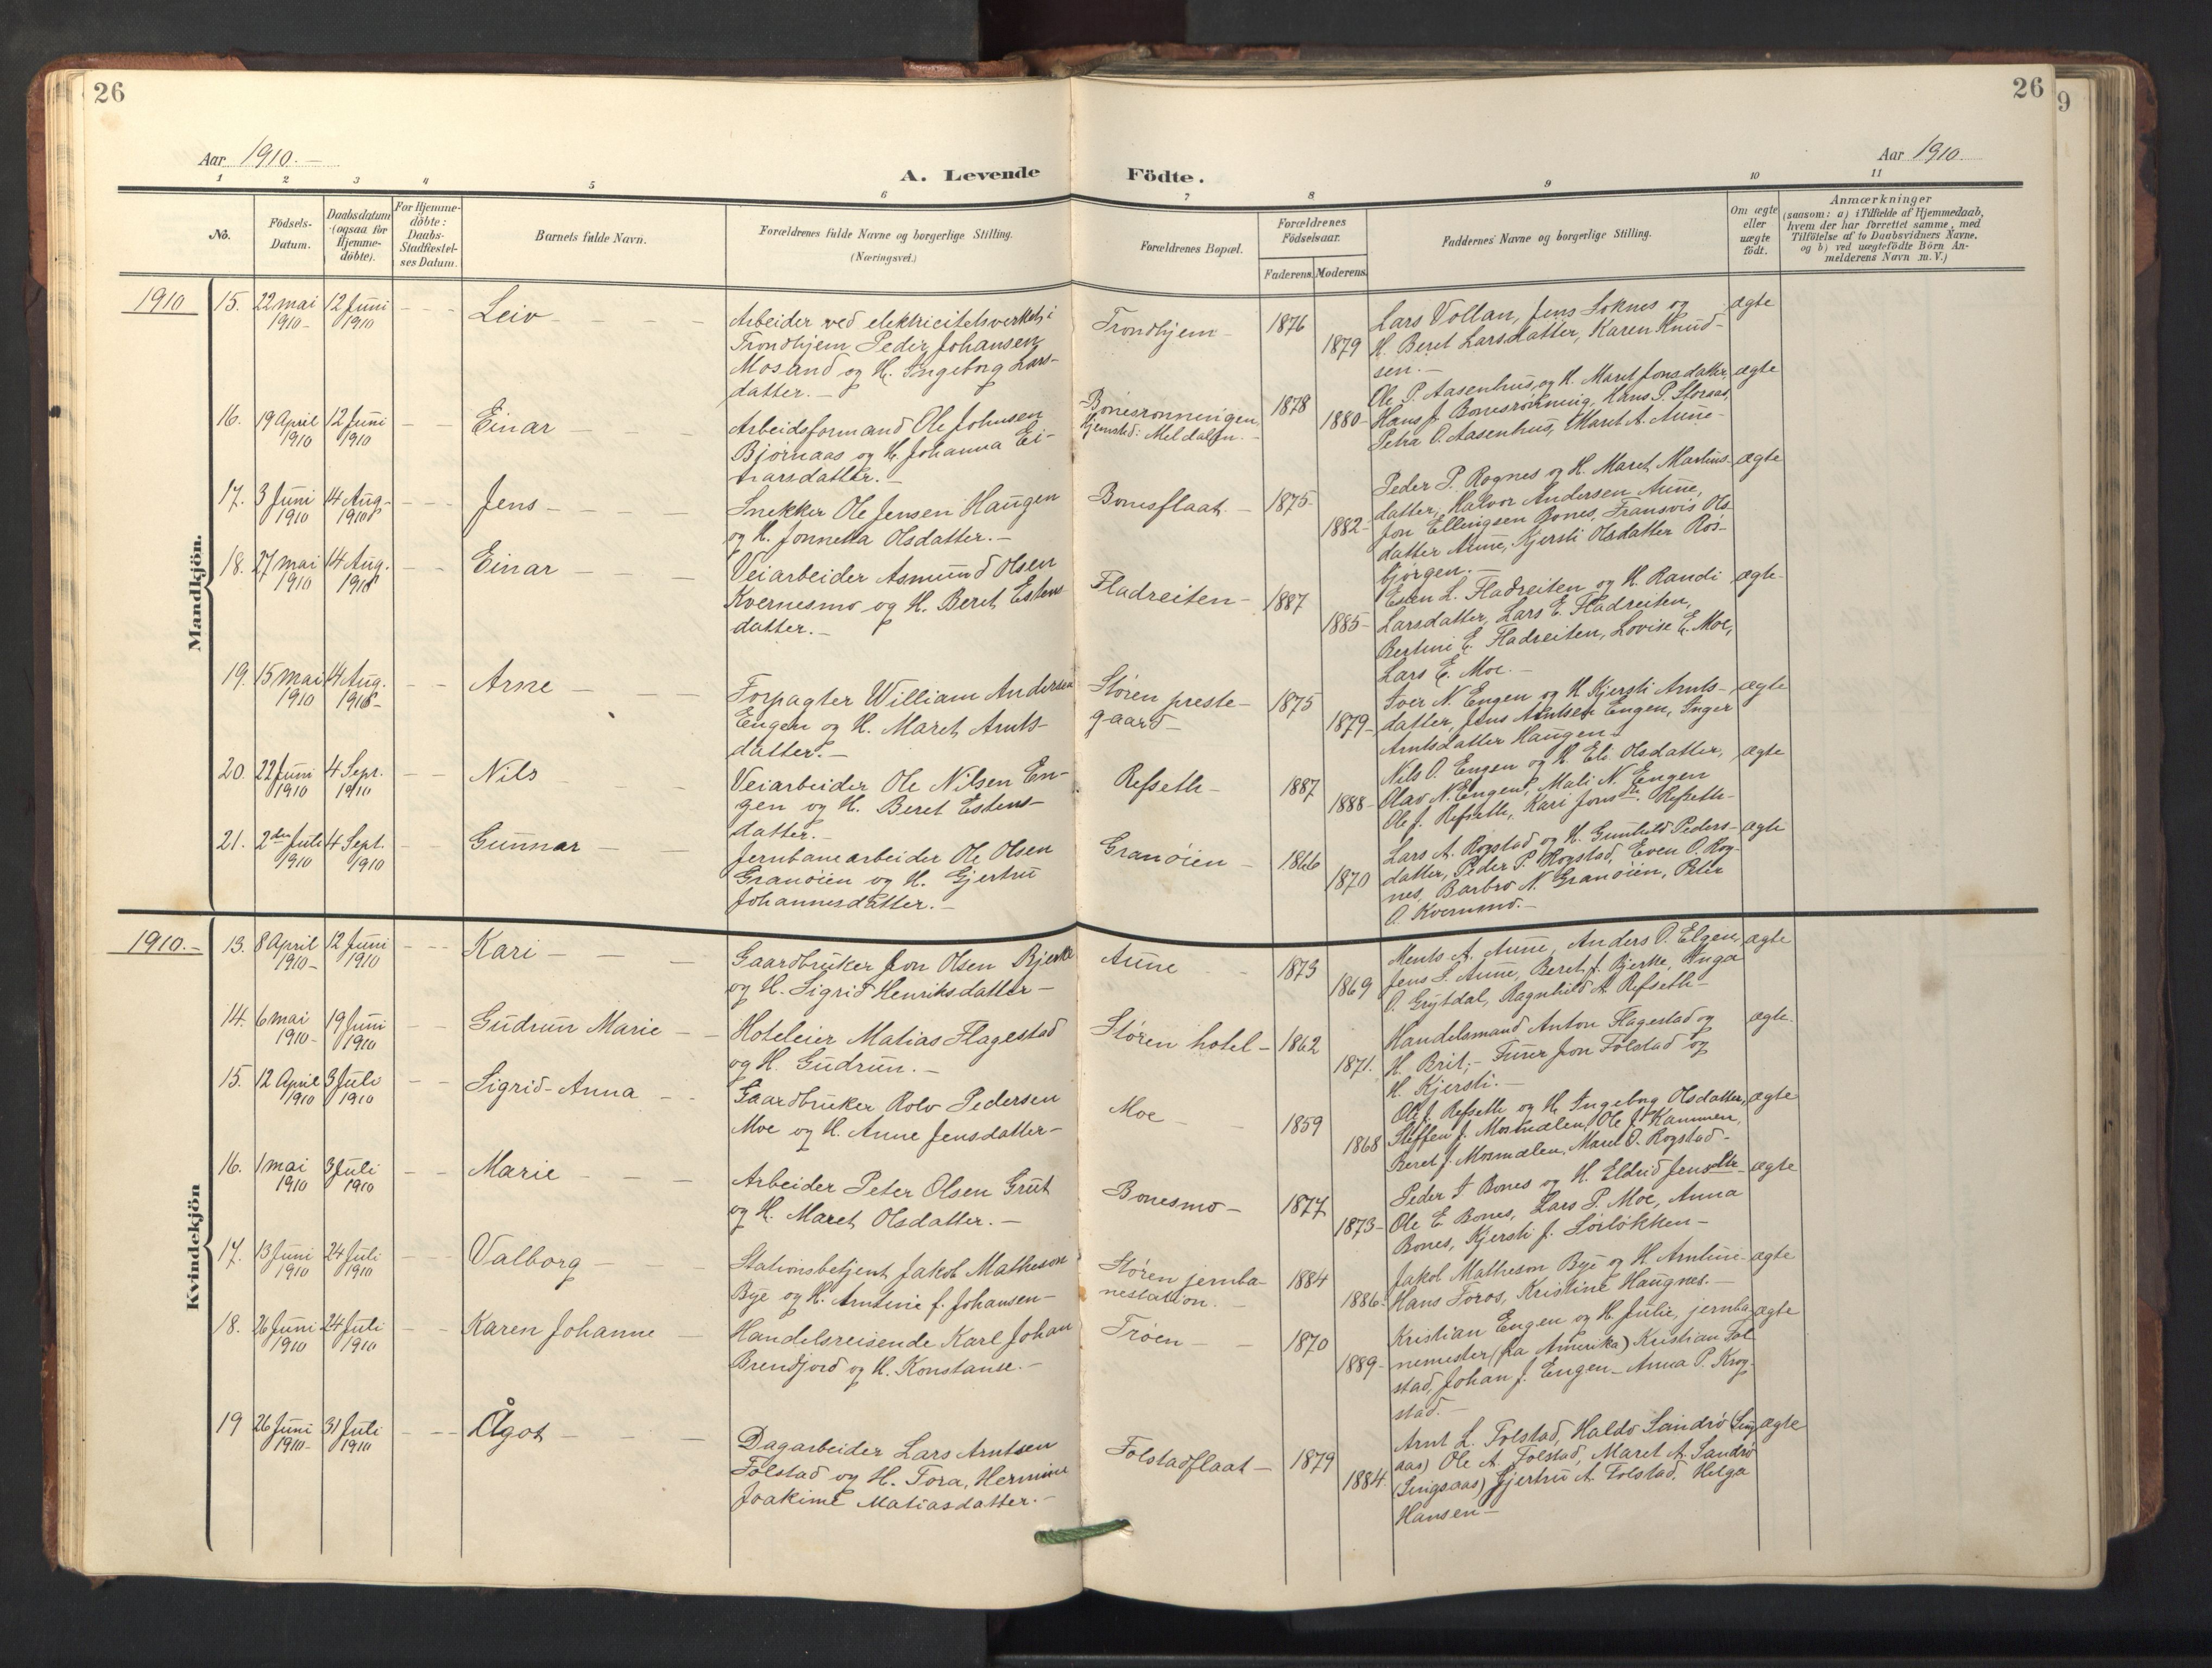 26
26
9
Aar 1910.–
Aar 1910
A. Levende Födte.
1 2 3 4 5 6 7 8 9 10 11
No.
Födsels-
Datum.
Daabsdatum
(ogsaa for
Hjemme-
döbte).
For Hjemme-
döbte:
Daabs-
Stadfæstel-
ses Datum.
Barnets fulde Navn.
Forældrenes fulde Navne og borgerlige Stilling.
(Næringsvei.)
Forældrenes Bopæl.
Forældrenes
Födselsaar.
Faderens. Moderens.
Faddernes Navne og borgerlige Stilling.
Om ægte
eller
uægte
födt.
Anmærkninger
(saasom: a) i Tilfælde af Hjemmedaab,
hvem der har forrettet samme, med
Tilföielse af to Daabsvidners Navne.
og b) ved uægtefödte Börn An-
melderens Navn m. V.)
Mandkjön.
1910
15. 22 mai
1910–
12 Juni
1910
Leiv
Arbeider ved elektricitetsverket i
Trondhjem Peder Johansen
Mosand og H. Ingeborg Lars-
datter.–
Trondhjem–
1876
1879
Lars Vollan, Jens Soknes og
H. Beret Larsdatter, Karen Knud-
sen.–
ægte
16. 19 April
1910
12 Juni
1910
Einar
Arbeidsformand Ole Johnsen
Bjørnaas og H. Johanna Ei-
narsdatter.–
Bonesrønningen
Hjemsted: Meldalen.–
1878
1880–
Ole P. Aasenhus, og H. Maret Jonsdatter,
Hans J. Bonesrønning, Hans P. Storaas,
Petra O. Aasenhus, Maret A. Aune–
ægte
17. 3 Juni
1910
14 Aug.
1910
Jens
Snekker Ole Jensen Haugen
og H. Jonnetta Olsdatter.–
Bonesflaat.–
1875–
1882–
Peder P. Rognes og H. Maret Martins-
datter, Halvor Andersen Aune,
Jon Ellingsen Bones, Fransvis Ols-
datter Aune, Kjersti Olsdatter Ros-
bjørgen.–
ægte
18. 27 mai
1910
14 Aug.
1910
Einar
Veiarbeider Asmund Olsen
Kvernesmo og H. Beret Estens-
datter.–
Fladreiten–
1887
1885–
Esten L. Fladreiten og H. Randi
Larsdatter, Lars E. Fladreiten,
Bertine E. Fladreiten, Lovise E. Moe,
Lars E. Moe.–
ægte–
19. 15 mai
1910
14 Aug.
1910–
Arne
Forpagter William Andersen
Engen og H. Maret Arnts-
datter.–
Støren preste-
gaard–
1875
1879–
Iver N. Engen og H. Kjersti Arnts-
datter, Jens Arntsen Engen, Inger
Arntsdatter Haugen–
ægte
20. 22 Juni
1910
4 Sept.
1910
Nils
Veiarbeider Ole Nilsen En-
gen og H. Beret Estens-
datter.–
Refseth–
1887
1888–
Nils O. Engen og H. Eli Olsdatter,
Olav N. Engen, Mali N. Engen
Ole J. Refseth, Kari Jonsdtr. Refseth–
ægte
21. 2den Juli
1910
4 Sept.
1910
Gunnar
Jernbanearbeider Ole Olsen
Granøien og H. Gjertru
Johannesdatter.–
Granøien–
1866
1870
Lars A. Rogstad og H. Gunhild Peders-
datter, Peder P. Rogstad, Even O. Rog-
nes, Barbro N. Granøien, Peter
O. Kvernmo.–
ægte
Kvindekjön
1910.–
13. 8 April
1910–
12 Juni
1910
Kari
Gaardbruker Jon Olsen Bjerke
og H. Sigrid Henriksdatter–
Aune
1873
1869
Ments A. Aune, Anders O. Elgen,
Jens S. Aune, Beret J. Bjerke, Inga
O. Grytdal, Ragnhild A. Refseth–
ægte
14. 6 mai
1910–
19 Juni
1910
Gudrun Marie
Hoteleier Matias Flagestad
og H. Gudrun.–
Støren hotel–
1862
1871.
Handelsmand Anton Flagestad og
H. Brit,– Furer Jon Folstad og
H. Kjersti.–
ægte.
15. 12 April
1910
3 Juli
1910
Sigrid-Anna
Gaardbruker Rolv Pedersen
Moe og H. Anne Jensdatter–
Moe
1859
1868
Ole J. Refseth og H. Ingeborg Olsdatter,
Steffen J. Mosmælen, Ole J. Kammen,
Beret J. Mosmælen, Maret O. Rogstad–
ægte
16. 1 mai
1910
3 Juli
1910
Marie
Arbeider Peter Olsen Grut
og H. Maret Olsdatter.–
Bonesmo–
1877
1873–
Peder T Bones og H. Eldrid Jensdtr.
Ole E. Bones, Lars P. Moe, Anna
Bones, Kjersti J. Sørløkken–
ægte
17. 13 Juni
1910
24 Juli
1910
Valborg
Stationsbetjent Jakob Matheson
Bye og H. Arntine f. Johansen–
Støren jernba-
nestation.–
1884
1886–
Jakob Matheson Bye og H. Arntine
Hans Foros, Kristine Haugnes.–
ægte
18. 26 Juni
1910
24 Juli
1910
Karen Johanne
Handelsreisende Karl Johan
Brendjord og H. Konstanse.–
Trøen
1870
1889–
Kristian Engen og H. Julie, jernba-
nemester, (fra Amerika) Kristian Fol
stad, Johan J. Engen– Anna P. Krog-
stad.–
ægte
19 26 Juni
1910–
31 Juli
1910
Ågot
Dagarbeider Lars Arntsen
Folstad og H. Tora, Hermine
Joakime Matiasdatter.–
Folstadflaat–
1879
1884.
Arnt L. Folstad, Haldo Sandrø (Sing-
aas) Ole A. Folstad, Maret A. Sandrø
(Singsaas) Gjertru A. Folstad, Helga
Hansen–
ægte